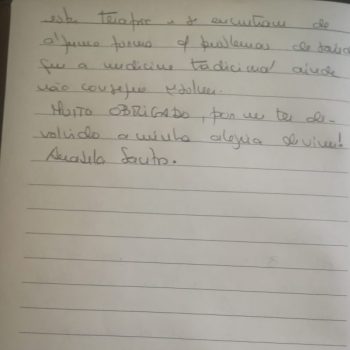 esta terapia e se encontram de
alguma forma c/ problemas de saúde
que a medicina tradicional ainda
não consegue resolver.
MUITO OBRIGADO, por me ter de-
volvido a minha alegria de viver!
Santos.